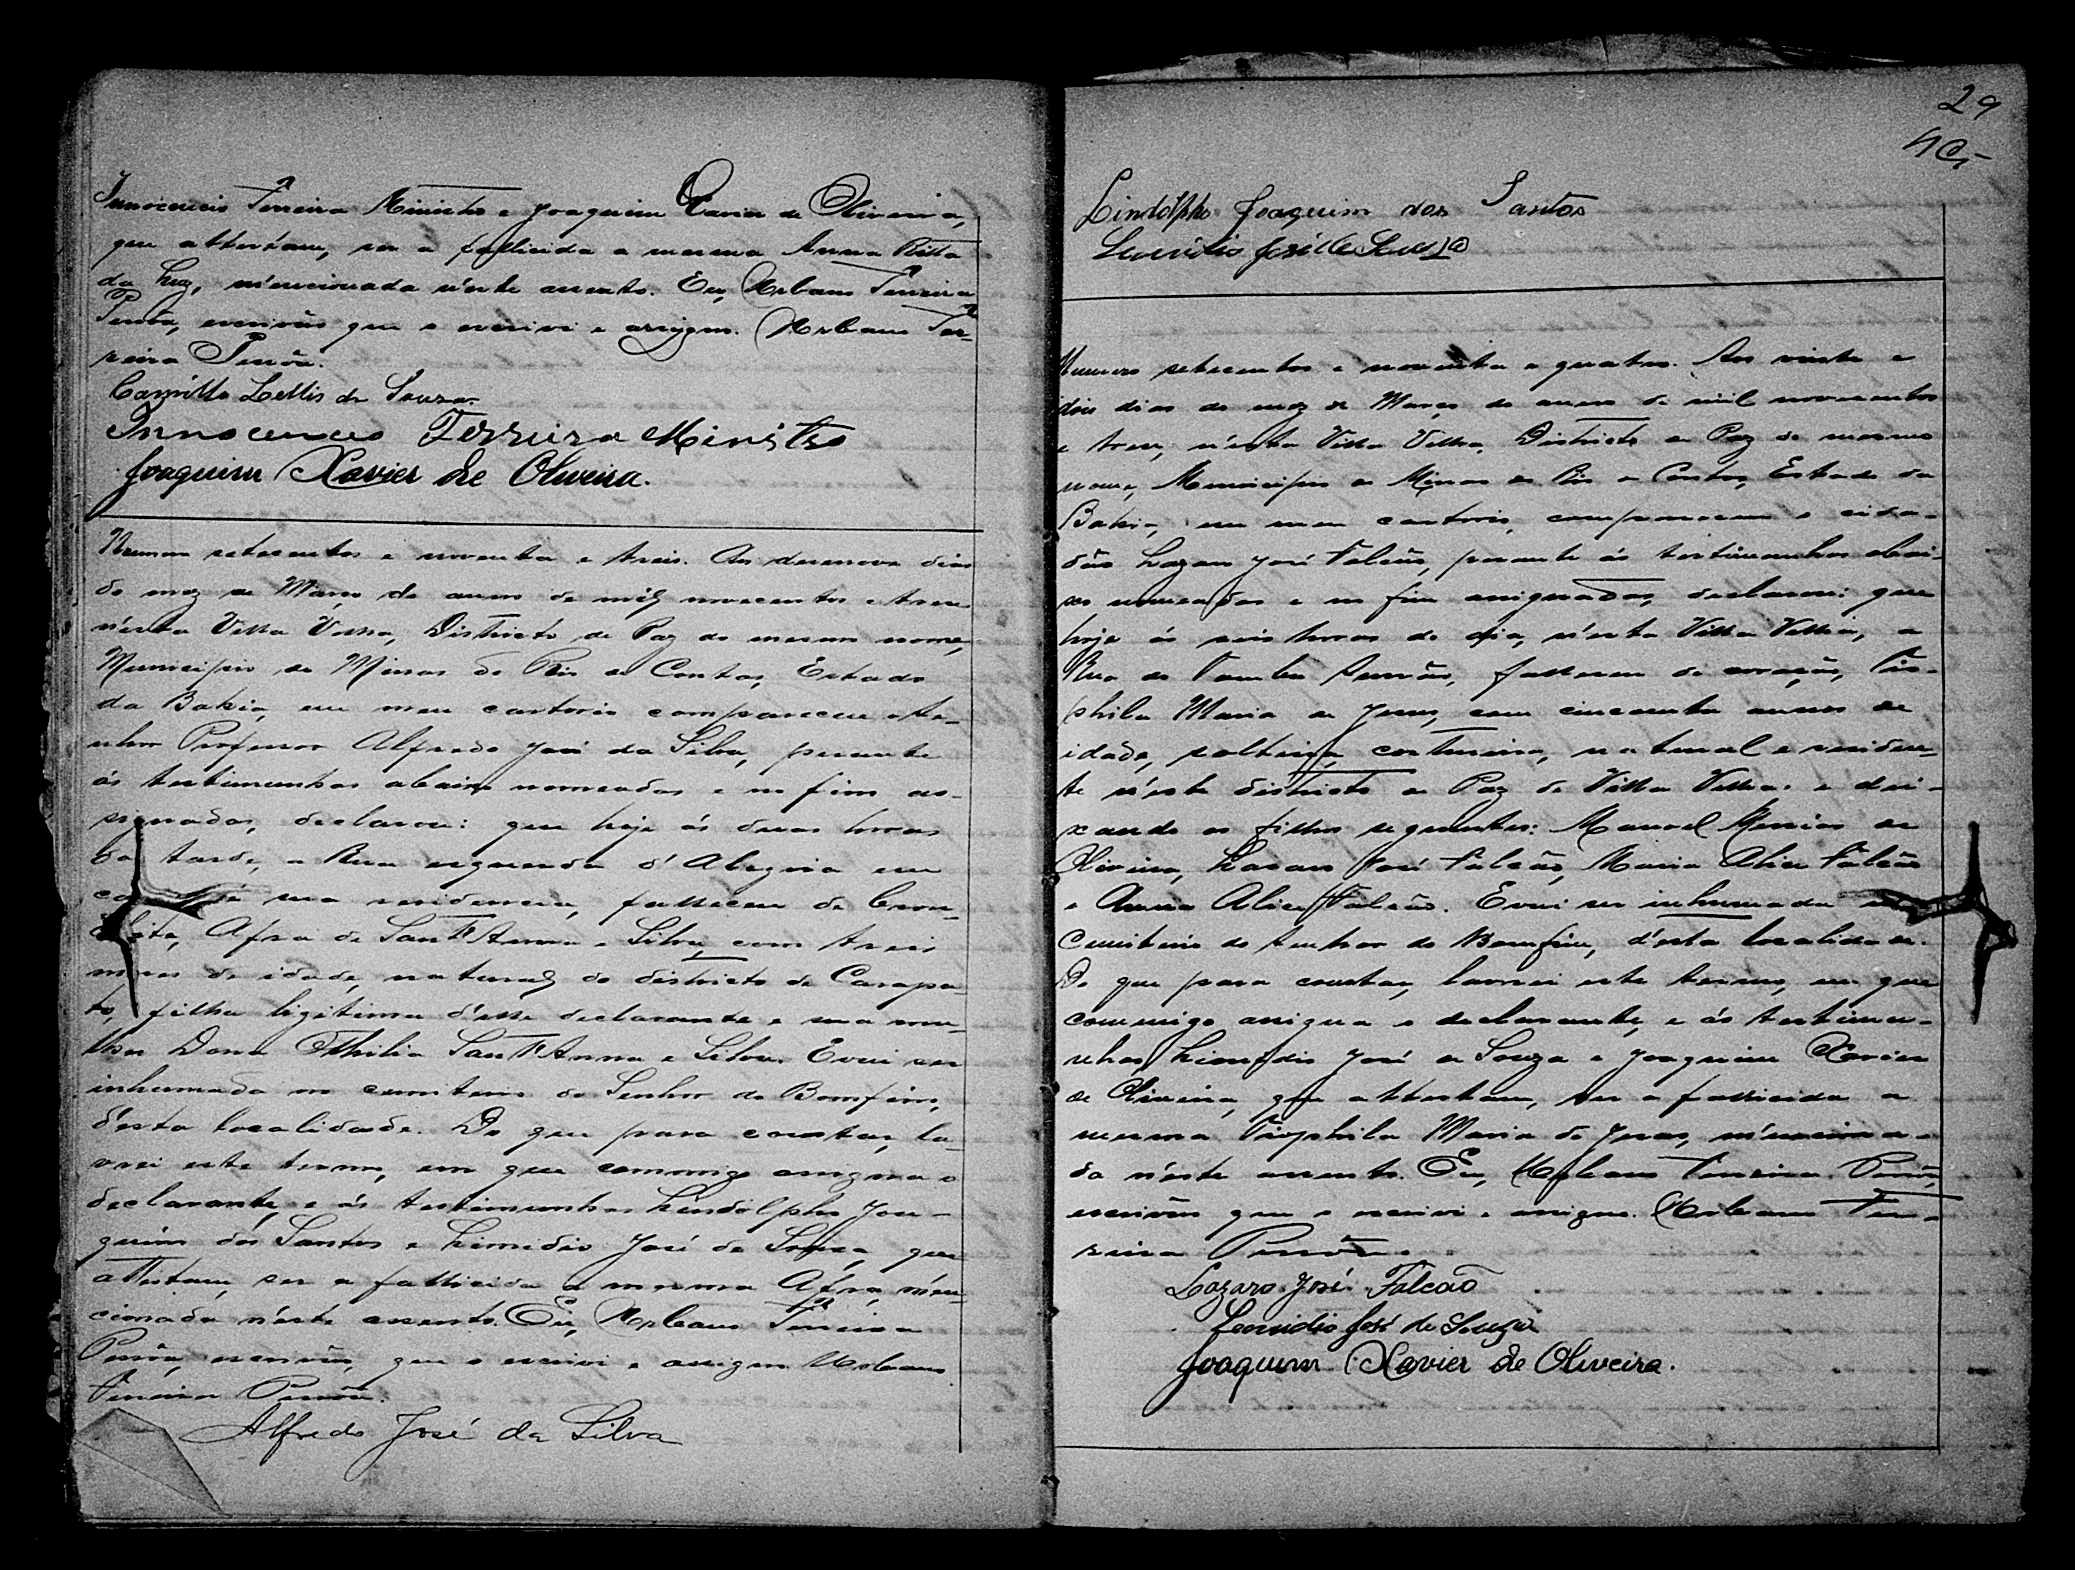 Innocencio Ferreira Ministro e Joaquim Xavier de Oliveira,
que attestam, ser a fallicida a mesma Anna Ritta
da Luz, méncionada n'este assento. Eu, Urbano Ferreira
Penôa, escrivão que o escrivi e assigno. Urbano Fer-
reira Penôa.
Camillo Lellis de Souza.
Innocencio Ferreira Ministro
Joaquim Xavier de Oliveira.
Numero setecentos e noventa e treis. Aos desenove dias
do mez de Março do anno de mil novecentos e tres
n'esta Villa Velha, Districto de Paz do mesmo nome,
Municipio de Minas do Rio de Contas, Estado
da Bahia, em meu cartorio compareceu o Se-
nhor Professor Alfredo José da Silva, perante
ás testimunhas abaixo nomeadas e no fim as-
signadas, declarou: que hoje ás duas horas
da tarde, a Rua esquerda d'Alegria em
sua residencia, falleceu de Bron-
chite, Afra de Sant'Anna e Silva, com treis
mezes de idade, natural do districto de Carapa-
to, filha ligitima d'esse declarante e sua mu-
lher Dona Othilia Sant'Anna e Silva. E vai ser
inhumada no cemiterio do Senhor do Bomfim,
d'esta localidade. Do que para constar, la-
vrei este termo, em que commigo assigna o
declarante, e ás testimunhas Lindolpho Joa-
quim dos Santos e Limidio José de Souza, que
attestam, ser a fallicida a mesma Afra, mén-
cionada n'este assento. Eu, Urbano Ferreira
Penôa, escrivão, que o escrivi e assigno Urbano
Ferreira Penôa.
Alfredo José da Silva
29
Lindolpho Joaquim dos Santos
José de Souza
Numero setecentos e noventa e quatro. Aos vinte e
dois dias do mez de Março do anno de mil novecentos
e tres, n'esta Villa Velha, Districto de Paz do mesmo
nome, Municipio de Minas do Rio de Contas, Estado da
Bahia, em meu cartorio, compareceu o cida-
dão Lazaro José Falcão, perante ás testimunhas abai-
xo nomeadas e no fim assignadas, declarou: que
hoje ás seis horas do dia, n'esta Villa Velha, a
Rua do falleceu de coração, Tio-
phila Maria de Jesus, com cincoenta annos de
idade, solteira, costureira, natural e residen-
te n'este districto de Paz de Villa Velha. e dei-
xando os filhos seguintes: Manoel Messias de
Oliveira, Lazaro José Falcão, Maria Alice Falcão
e Anna Alice Falcão. E vai ser inhumada no
Cemiterio do Senhor do Bomfim, d'esta localidade.
Do que para constar, lavrei este termo, em que
commigo assigna o declarante, e ás testimu-
nhas, Limidio José de Souza e Joaquim Xavier
de Oliveira, que attestam, ser a fallicida a
mesma Tiophila Maria de Jesus, ménciona-
da n'este assento. Eu, Urbano Ferreira Penôa,
escrivão que o escrivi e assigno. Urbano Fer-
reira Penôa.
Lazaro José Falcão
José de Souza
Joaquim Xavier de Oliveira.